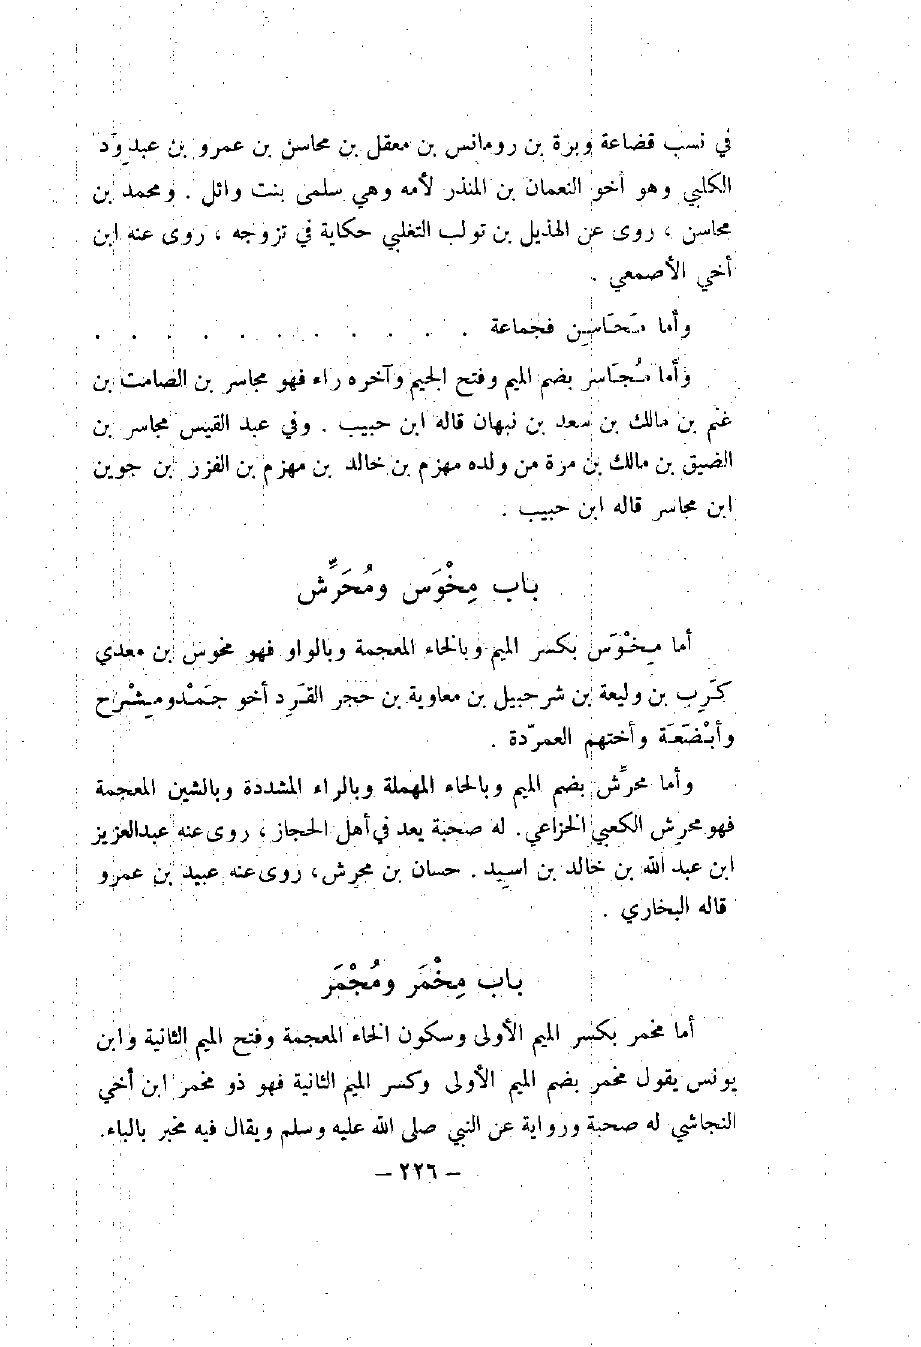 في نسب قضاعة وبرة بن رومانس بن معقل بن محاسن بن عمرو بن عبدوَد
الكلبي وهو أخو النعمان بن المنذر لأمه وهي سلمى بنت وائل . ومحمد بن
محاسن ، روى عن الهذيل بن تولب التغلبي حكاية في تزوجه ، روى عنه ابن
أخي الأصمعي .
وأما مَحَاسِن فجماعة . . . . . . . . . . .
وأما مُجَاسر بضم الميم وفتح الجيم وآخره راء فهو مجاسر بن الصامت بن
غنم بن مالك بن سعد بن نبهان قاله ابن حبيب . وفي عبد القيس مجاسر بن
الضيق بن مالك بن مرة من ولده مهزم بن خالد بن مهزم بن الفزر بن جوين
ابن مجاسر قاله ابن حبيب .
باب مِخْوَس ومُحَرِّش
أما مِخْوَس بكسر الميم وبالخاء المعجمة وبالواو فهو مخوس بن معدي
كَرِب بن وليعة بن شرحبيل بن معاوية بن حجر القَرِد أخو جَمْدومِشْرَح
وأبْضَعَة وأختهم العمرّدة .
وأما محرِّش بضم الميم وبالحاء المهملة وبالراء المشددة وبالشين المعجمة
فهو محرش الكعبي الخزاعي. له صحبة يعد في أهل الحجاز ، روى عنه عبدالعزيز
ابن عبد الله بن خالد بن اسيد . حسان بن محرش، روى عنه عبيد بن عمرو
قاله البخاري .
باب مِخْمَر ومُجْمَر
أما مخمر بكسر الميم الأولى وسكون الخاء المعجمة وفتح الميم الثانية وابن
يونس يقول مخمر بضم الميم الأولى وكسر الميم الثانية فهو ذو مخمر ابن أخي
النجاشي له صحبة ورواية عن النبي صلى الله عليه وسلم ويقال فيه مخبر بالباء.
– ٢٢٦ –